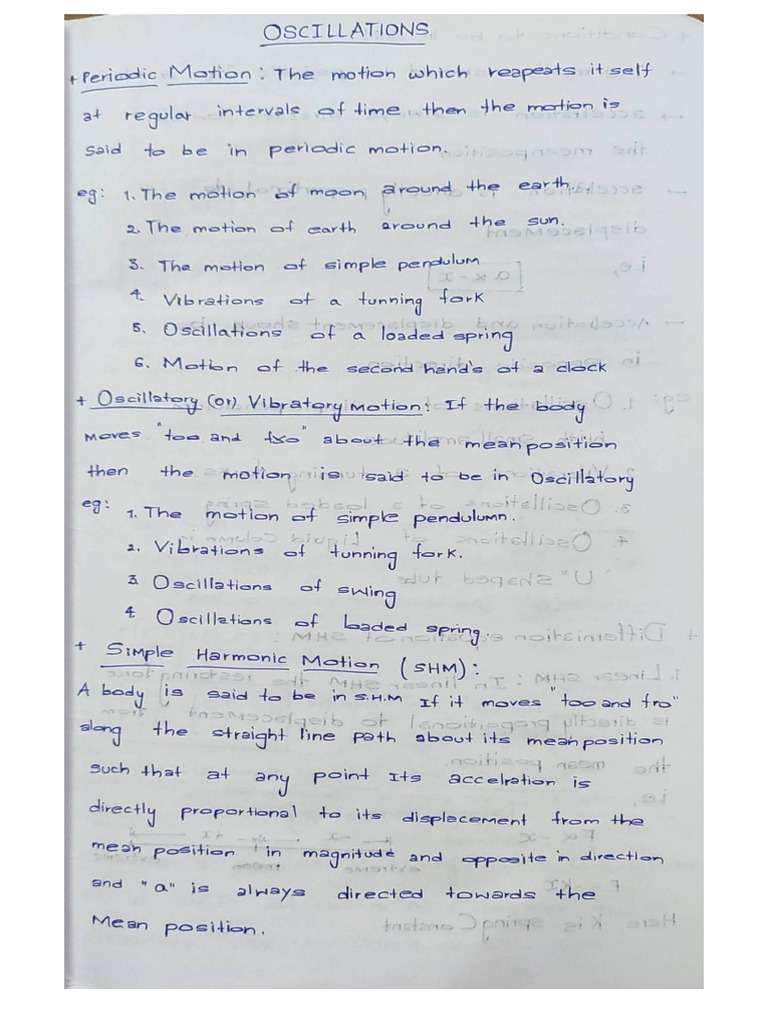 OSCILLATIONS
+ Periodic Motion: The motion which reapeats it self
at regular intervals of time then the motion is
said to be in periodic motion.
eg: 1. The motion of moon around the earth.
2. The motion of earth around the sun.
3. The motion of simple pendulum
4. Vibrations of a tunning fork
5. Oscillations of a loaded spring
6. Motion of the second hand's of a clock
+ Oscillatory (or) Vibratory Motion: If the body
moves "too and fro" about the mean position
then the motion is said to be in Oscillatory
eg: 1. The motion of simple pendulumn.
2. Vibrations of tunning fork.
3. Oscillations of swing
4. Oscillations of loaded spring
+ Simple Harmonic Motion (SHM):
A body is said to be in S.H.M If it moves "too and fro"
along the straight line path about its mean position
such that at any point Its accelration is
directly proportional to its displacement from the
mean position in magnitude and opposite in direction
and "a" is always directed towards the
Mean position.